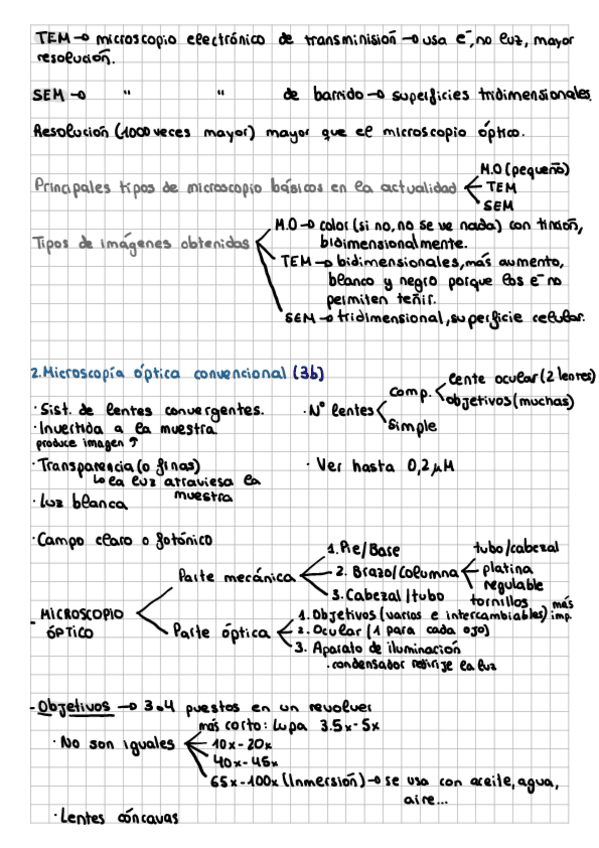 TEM → microscopio electrónico de transminisión → usa e⁻, no luz, mayor
resolución.
SEM → " " de barrido → superficies tridimensionales.
Resolución (1000 veces mayor) mayor que el microscopio óptico.
M.O (pequeño)
Principales tipos de microscopio básicos en la actualidad TEM
SEM
M.O → color (si no, no se ve nada) con tinción,
Tipos de imágenes obtenidas bidimensionalmente.
TEM → bidimensionales, más aumento,
blanco y negro porque los e⁻ no
permiten teñir.
SEM → tridimensional, superficie celular.
2. Microscopía óptica convencional (3b)
· Sist. de lentes convergentes.
· Invertida a la muestra
produce imagen ↑
· Transparencia (o finas)
↳ la luz atraviesa la
muestra
· luz blanca
· Nº lentes
comp.
lente ocular (2 lentes)
objetivos (muchas)
simple
· Ver hasta 0,2 μM
· Campo claro o fotónico
- MICROSCOPIO
ÓPTICO
Parte mecánica
1. Pie/Base
2. Brazo/Columna
tubo/cabezal
platina
regulable
tornillos
3. Cabezal/tubo
Parte óptica
1. Objetivos (varios e intercambiables) más imp.
2. Ocular (1 para cada ojo)
3. Aparato de iluminación
· condensador
la luz
- Objetivos → 3 o 4 puestos en un revolver
más corto: Lupa 3.5x-5x
· No son iguales 10x-20x
40x-45x
65x-100x (Inmersión) → se usa con aceite, agua,
aire...
· Lentes cóncavas